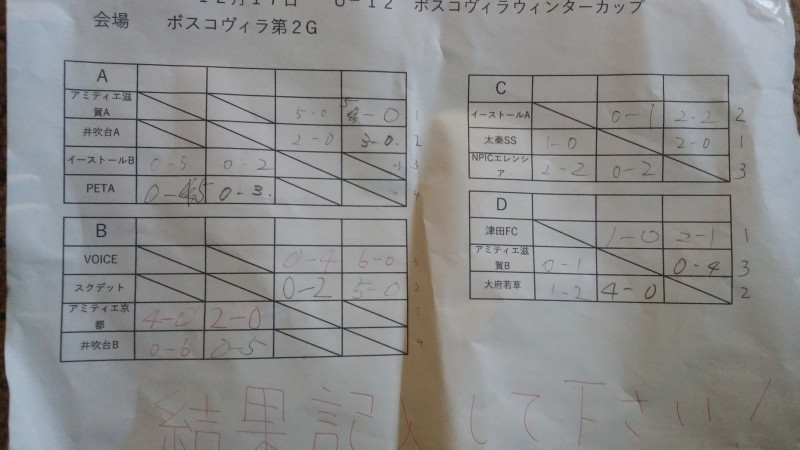 12月17日 U-12 ボスコヴィラウィンターカップ
会場 ボスコヴィラ第2G
A
アミティエ滋賀A 5-0 5-0 1
井吹台A 2-0 3-0. 2
イーストールB 0-5 0-2 3
PETA 0-5 0-3. 4
B
VOICE 0-4 6-0 3
スクデット 0-2 5-0 2
アミティエ京都 4-0 2-0 1
井吹台B 0-6 0-5 4
C
イーストールA 0-1 2-2 2
太秦SS 1-0 2-0 1
NPICエレンシア 2-2 0-2 3
D
津田FC 1-0 2-1 1
アミティエ滋賀B 0-1 0-4 3
大府若草 1-2 4-0 2
結果記入して下さい!